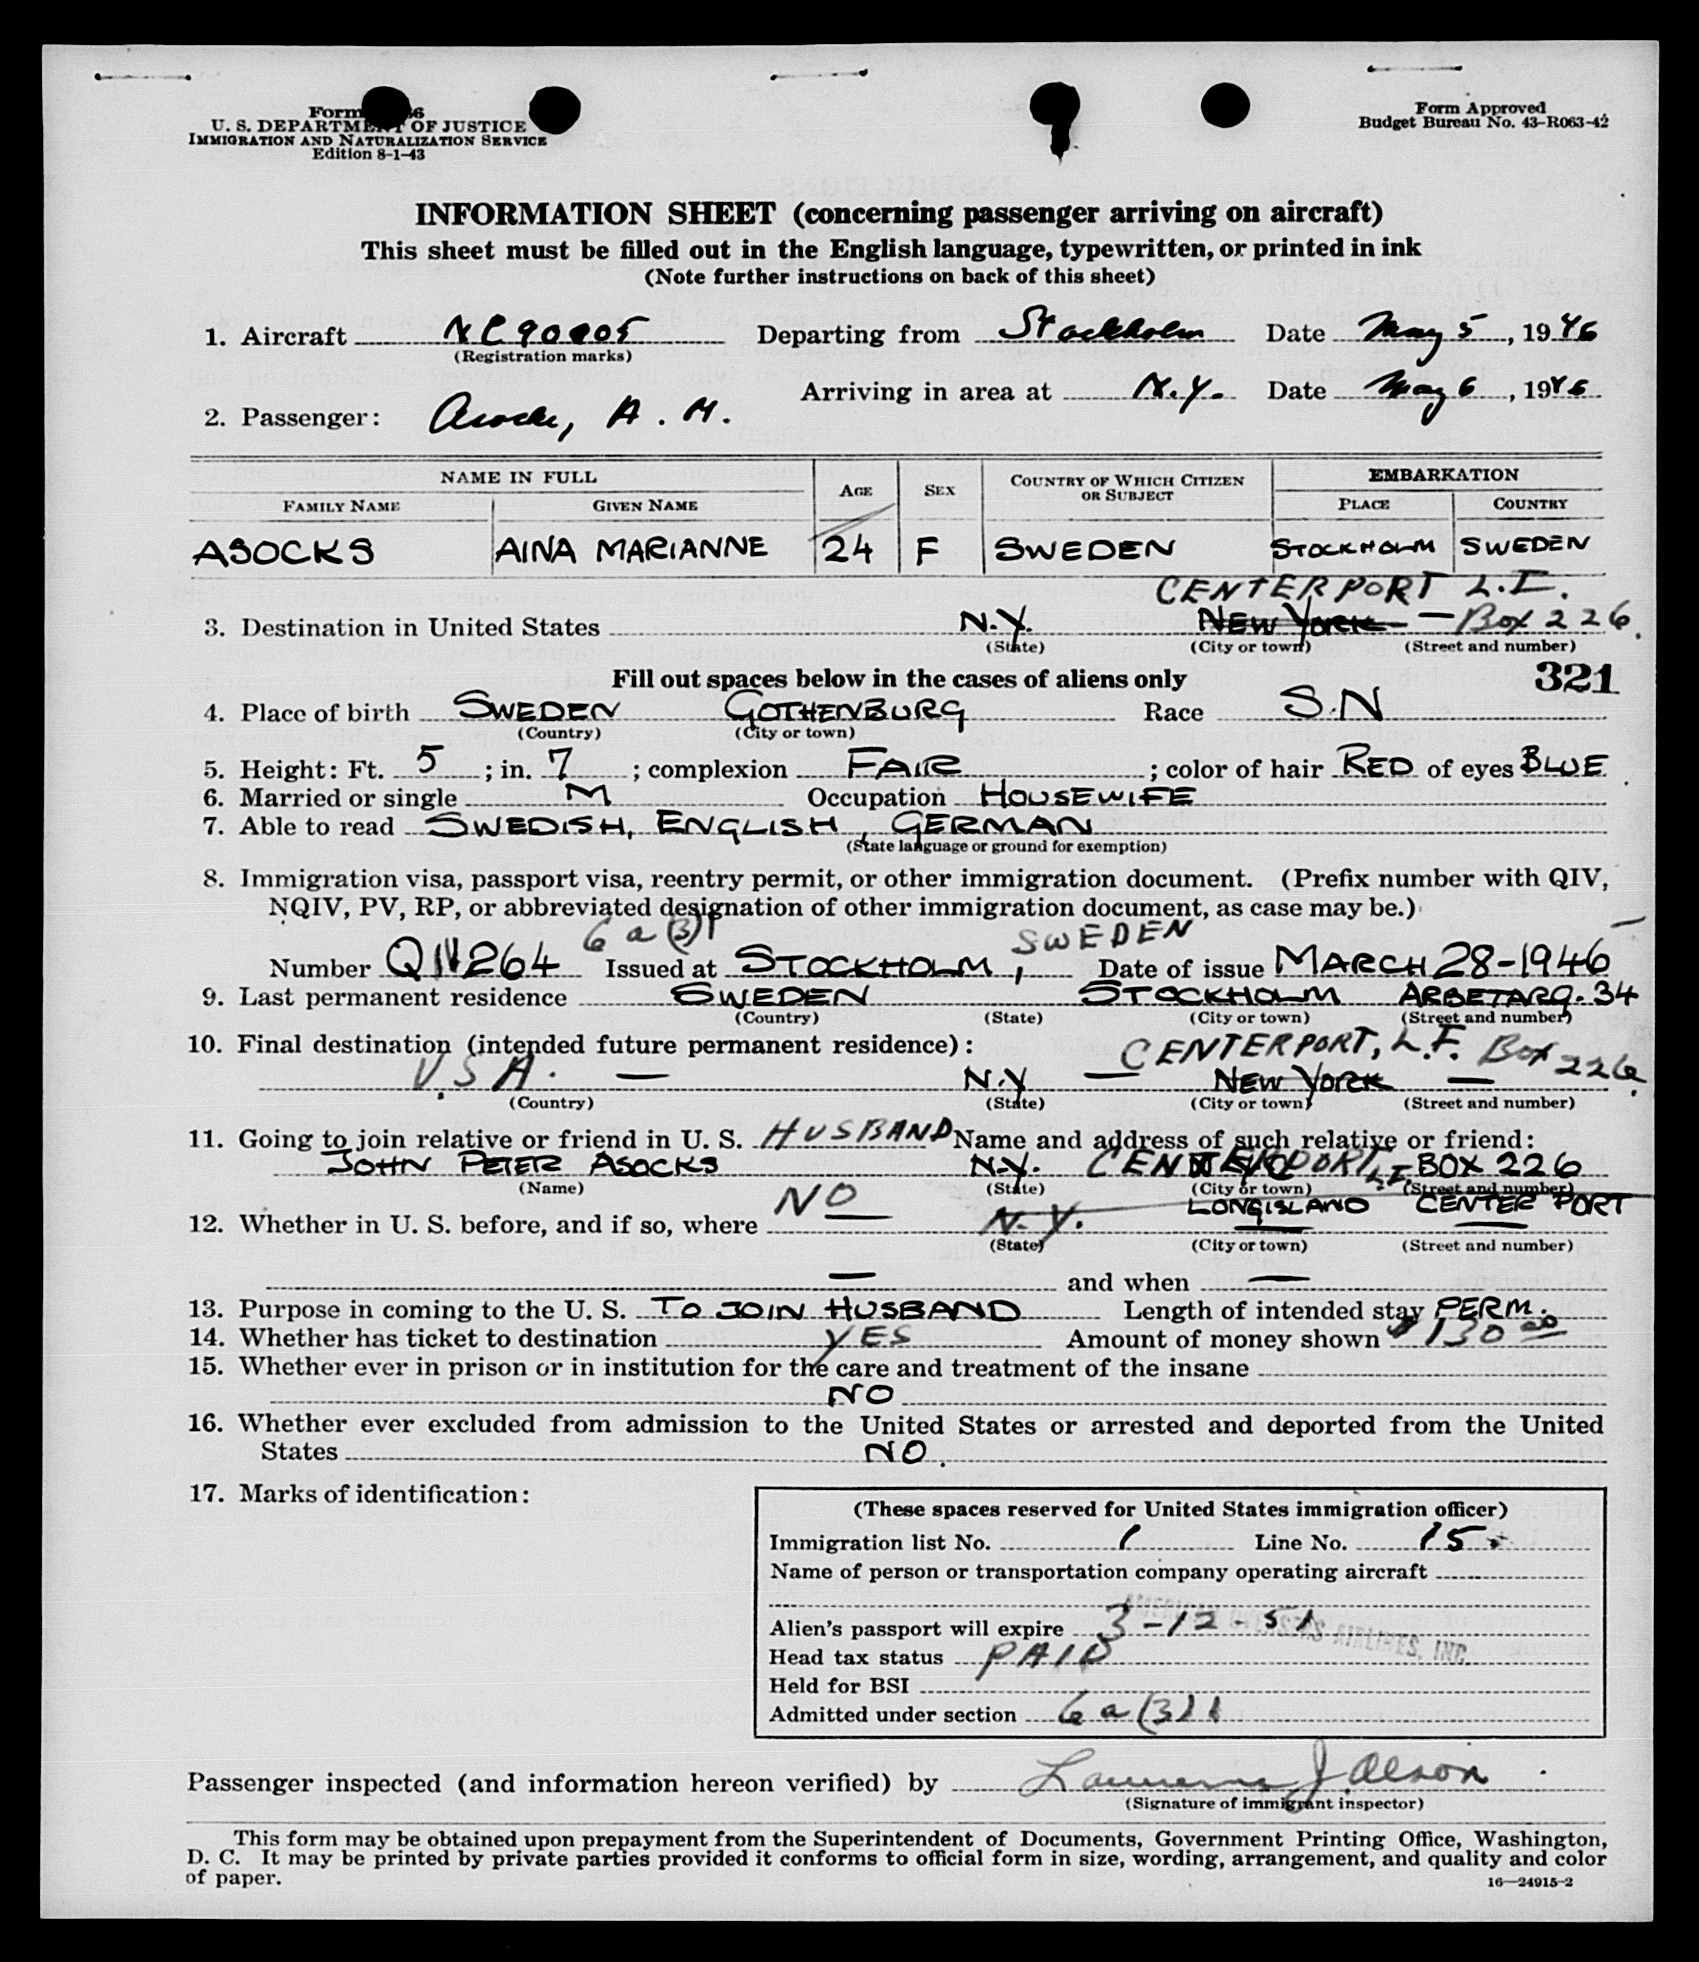 Form 6
U. S. DEPARTMENT OF JUSTICE
IMMIGRATION AND NATURALIZATION SERVICE
Edition 8-1-43
Form Approved
Budget Bureau No. 43-R063-42
INFORMATION SHEET (concerning passenger arriving on aircraft)
This sheet must be filled out in the English language, typewritten, or printed in ink
(Note further instructions on back of this sheet)
1. Aircraft NC90905 Departing from Stockholm Date May 5, 1946
(Registration marks)
Arriving in area at N.Y. Date May 6, 1946
2. Passenger: Asocks, A. M.
NAME IN FULL AGE SEX COUNTRY OF WHICH CITIZEN OR SUBJECT EMBARKATION
FAMILY NAME GIVEN NAME PLACE COUNTRY
ASOCKS AINA MARIANNE 24 F SWEDEN STOCKHOLM SWEDEN
CENTERPORT L.I.
3. Destination in United States N.Y. NEW YORK — Box 226.
(State) (City or town) (Street and number)
Fill out spaces below in the cases of aliens only 321
4. Place of birth SWEDEN GOTHENBURG Race S.N
(Country) (City or town)
5. Height: Ft. 5; in. 7; complexion FAIR; color of hair RED of eyes BLUE
6. Married or single M Occupation HOUSEWIFE
7. Able to read SWEDISH, ENGLISH, GERMAN
(State language or ground for exemption)
8. Immigration visa, passport visa, reentry permit, or other immigration document. (Prefix number with QIV,
NQIV, PV, RP, or abbreviated designation of other immigration document, as case may be.)
6 a (3) 1 SWEDEN
Number QIV264 Issued at STOCKHOLM, Date of issue MARCH 28-1946
9. Last permanent residence SWEDEN STOCKHOLM ARBETARG. 34
(Country) (State) (City or town) (Street and number)
10. Final destination (intended future permanent residence): CENTERPORT, L.I. Box 226.
U.S.A. — N.Y — NEW YORK —
(Country) (State) (City or town) (Street and number)
11. Going to join relative or friend in U. S. HUSBAND Name and address of such relative or friend:
JOHN PETER ASOCKS N.Y. CENTERPORT L.I. BOX 226
(Name) (State) (City or town) (Street and number)
LONGISLAND CENTER PORT
12. Whether in U. S. before, and if so, where NO — N.Y. — —
(State) (City or town) (Street and number)
— and when —
13. Purpose in coming to the U. S. TO JOIN HUSBAND Length of intended stay PERM.
14. Whether has ticket to destination YES Amount of money shown $130 00
15. Whether ever in prison or in institution for the care and treatment of the insane
NO
16. Whether ever excluded from admission to the United States or arrested and deported from the United
States NO.
17. Marks of identification:
(These spaces reserved for United States immigration officer)
Immigration list No. 1 Line No. 15
Name of person or transportation company operating aircraft
AMERICAN OVERSEAS AIRLINES, INC.
Alien's passport will expire 3-12-51
Head tax status PAID
Held for BSI
Admitted under section 6 a (3) 1
Passenger inspected (and information hereon verified) by Lawrence J. Olson
(Signature of immigrant inspector)
This form may be obtained upon prepayment from the Superintendent of Documents, Government Printing Office, Washington,
D. C. It may be printed by private parties provided it conforms to official form in size, wording, arrangement, and quality and color
of paper.
16—24915-2